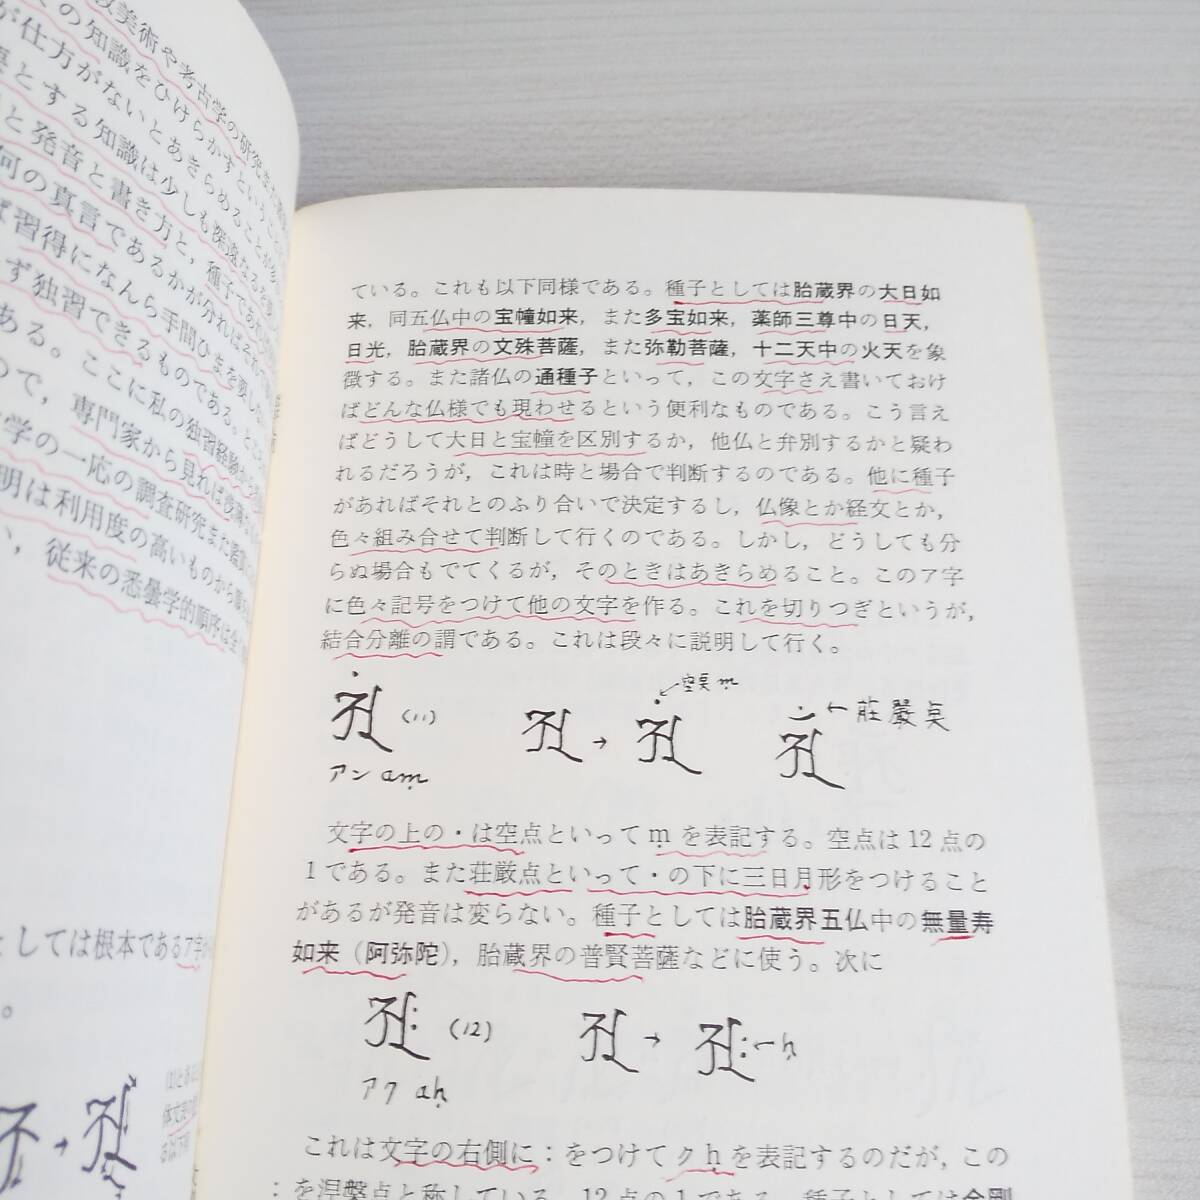 教美術や考古学の研究また
の知識をひけらかすということ
が仕方がないとあきらめることが
とする知識は少しも深遠なるを要し
と発音と書き方と，種子であれ
何の真言であるかが分ればそれで
ば習得になんら手間ひまを要した
ず独習できるものである。ところ
ある。ここに私の独習経験から
ので，専門家から見れば
学の一応の調査研究また鑑賞の
明は利用度の高いものから
い，従来の悉曇学的順序は全く
としては根本であるア字
。
ている。これも以下同様である。種子としては胎蔵界の大日如
来，同五仏中の宝幢如来，また多宝如来，薬師三尊中の日天，
日光，胎蔵界の文殊菩薩，また弥勒菩薩，十二天中の火天を象
徴する。また諸仏の通種子といって，この文字さえ書いておけ
ばどんな仏様でも現わせるという便利なものである。こう言え
ばどうして大日と宝幢を区別するか，他仏と弁別するかと疑わ
れるだろうが，これは時と場合で判断するのである。他に種子
があればそれとのふり合いで決定するし，仏像とか経文とか，
色々組み合せて判断して行くのである。しかし，どうしても分
らぬ場合もでてくるが，そのときはあきらめること。このア字
に色々記号をつけて他の文字を作る。これを切りつぎというが，
結合分離の謂である。これは段々に説明して行く。
(11) → 空点 ṃ ←荘厳点
アン aṃ
文字の上の・は空点といってṃを表記する。空点は12点の
1である。また荘厳点といって・の下に三日月形をつけること
があるが発音は変らない。種子としては胎蔵界五仏中の無量寿
如来（阿弥陀），胎蔵界の普賢菩薩などに使う。次に
(12) → ←ḥ
アク aḥ
これは文字の右側に：をつけてクḥを表記するのだが，この
：を涅槃点と称している。12点の1である。種子としては金剛